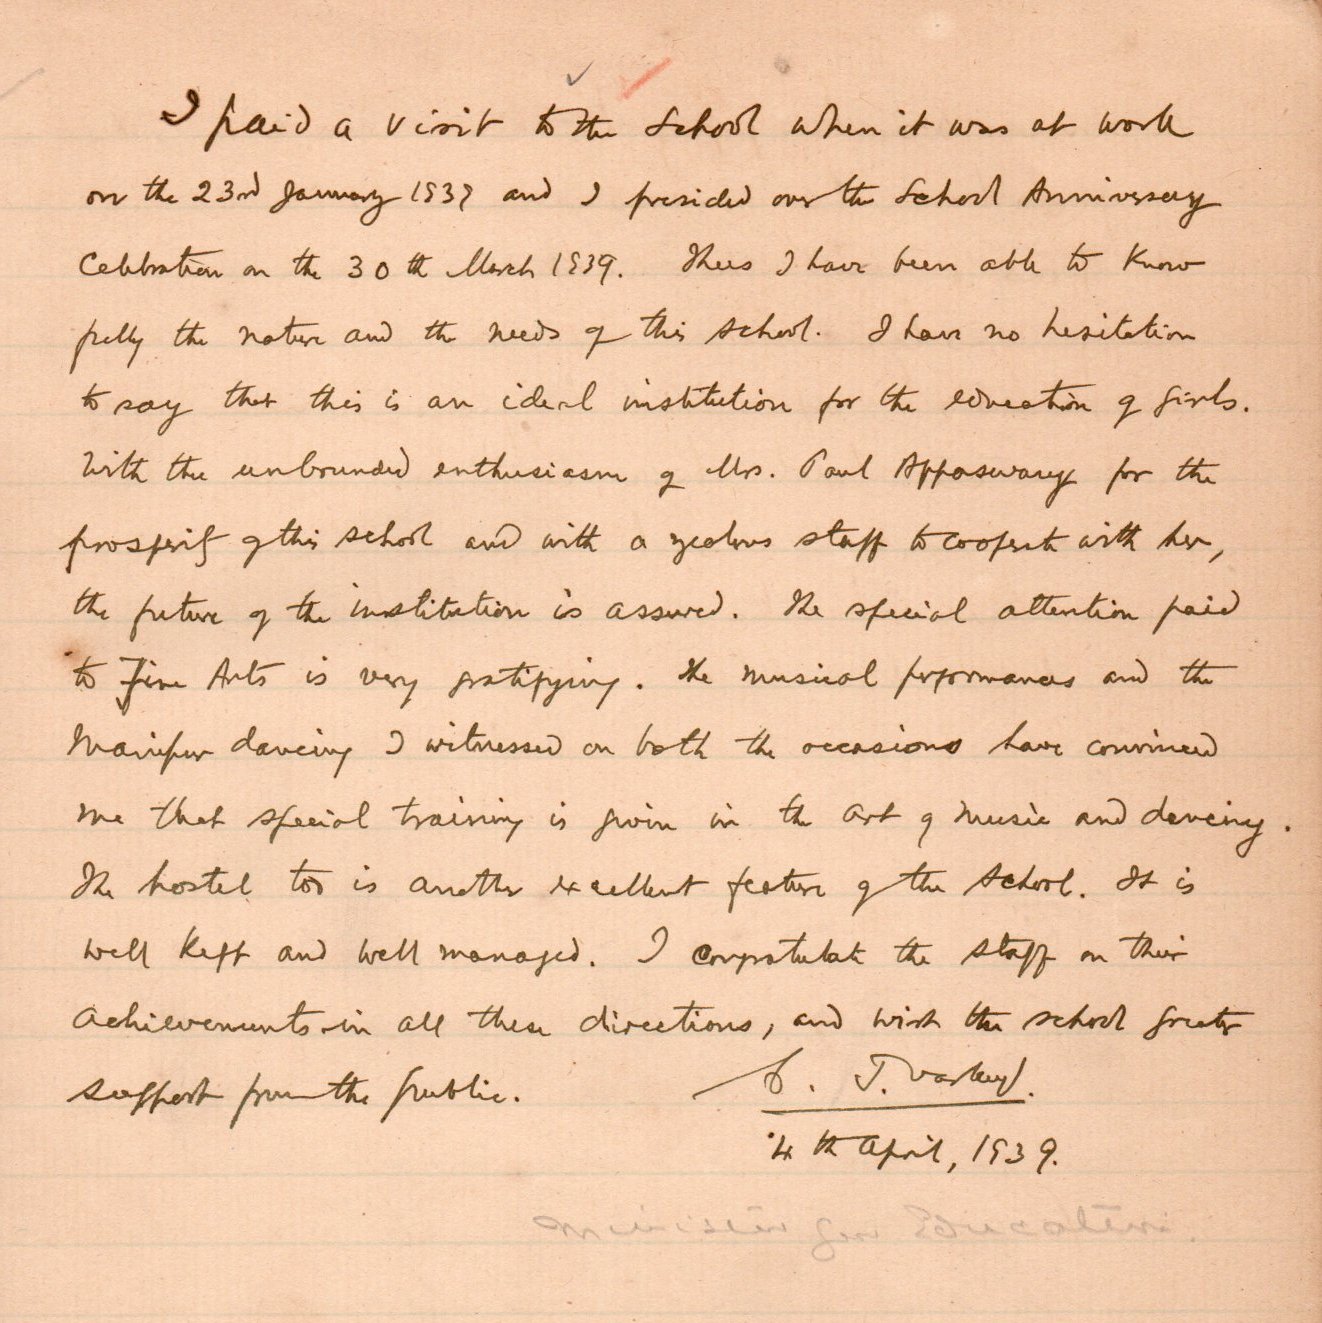 I paid a visit to the School when it was at work
on the 23rd January 1939 and I presided over the School Anniversary
Celebration on the 30th March 1939. Thus I have been able to know
fully the nature and the needs of this school. I have no hesitation
to say that this is an ideal institution for the education of girls.
With the unbounded enthusiasm of Mrs. Paul Appaswamy for the
prosperity of this school and with a zealous staff to cooperate with her,
the future of the institution is assured. The special attention paid
to Fine Arts is very gratifying. The musical performances and the
Manipur dancing I witnessed on both the occasions have convinced
me that special training is given in the art of music and dancing.
The hostel too is another excellent feature of the School. It is
well kept and well managed. I congratulate the staff on their
achievements in all these directions, and wish the school greater
support from the public.
4th April, 1939.
Minister for Education.